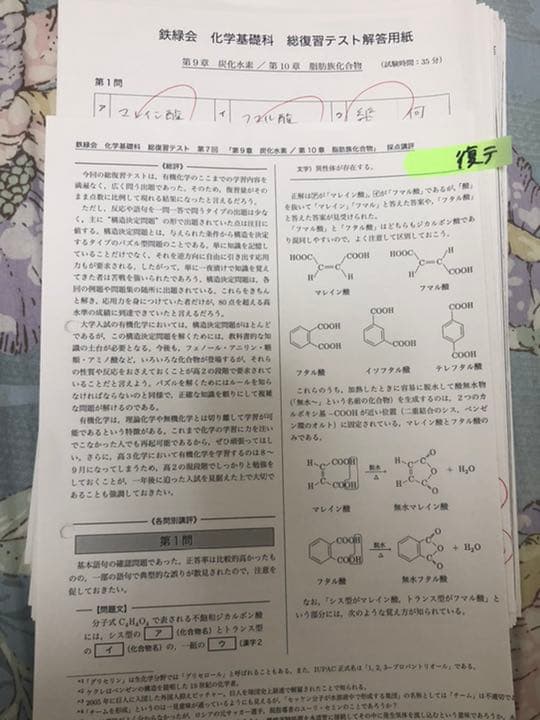 鉄緑会　化学基礎科　総復習テスト解答用紙
第9章　炭化水素 ／ 第10章　脂肪族化合物　（試験時間：35分）
第1問
ア マレイン酸 イ フマル酸 ウ 幾何
鉄緑会　化学基礎科　総復習テスト　第7回　「第9章　炭化水素 ／ 第10章　脂肪族化合物」　採点講評
復テ
《総評》
今回の総復習テストは、有機化学のここまでの学習内容を
満遍なく、広く問う出題であった。そのため、復習量がそのま
ま点数に比例して現れる結果になったと言えるだろう。
ただし、反応や語句を一問一答で問うタイプの出題は少な
く、主に“構造決定問題”の形で出題されていた点は注目に
値する。構造決定問題とは、与えられた条件から構造を決定
するタイプのパズル型問題のことである。単に知識を記憶し
ていることだけでなく、それを逆方向に自由に引き出す応用
力もが要求される。したがって、単に一夜漬けで知識を覚え
てきた者は苦戦を強いられたであろう。構造決定問題は、各
回の例題や問題集の随所に出題されている。これらをきちん
と解き、応用力を身につけていた者だけが、80点を超える高
水準の成績に到達できていたと言えるだろう。
大学入試の有機化学においては、構造決定問題がほとんど
であるが、この構造決定問題を解くためには、教科書的な知
識の土台が必要となる。今後も、フェノール・アニリン・糖
類・アミノ酸など、いろいろな化合物が登場するが、それら
の性質や反応をおさえておくことが高2の段階で要求されて
いることだと言えよう。パズルを解くためにはルールを知ら
なければならないのと同様で、正確な知識を頼りにして複雑
な問題が解けるのである。
有機化学は、理論化学や無機化学とは切り離して学習が可
能であるという特徴がある。これまで化学の学習に力を注い
でこなかった人でも再起可能であるから、ぜひ頑張ってほし
い。さらに、高3化学において有機化学を学習するのは8～
9月になってしまうため、高2の現段階でしっかりと勉強を
しておくことが、一年後に迫った入試を見据えた上で大切で
あることも強調しておきたい。
《各問別講評》
第1問
基本語句の確認問題であった。正答率は比較的高かったも
のの、一部の語句で典型的な誤りが散見されたので、注意を
促しておきたい。
【問題文】
分子式 C4H4O4 で表される不飽和ジカルボン酸
には、シス型の ア （化合物名）とトランス型
の イ （化合物名）の、一組の ウ （漢字2
文字）異性体が存在する。
正解はアが「マレイン酸」、イが「フマル酸」であるが、「酸」
を抜いて「マレイン」「フマル」と答えた答案や、「フタル酸」
と答えた答案が見受けられた。
「フマル酸」と「フタル酸」はどちらもジカルボン酸であ
り混同しやすいので、よく注意して区別しておこう。
HOOC COOH HOOC H
C=C C=C
H H H COOH
マレイン酸 フマル酸
COOH COOH COOH
COOH COOH COOH
フタル酸 イソフタル酸 テレフタル酸
これらのうち、加熱したときに容易に脱水して酸無水物
（「無水～」という名前の化合物）を生成するのは、2つのカ
ルボキシ基－COOHが近い位置（二重結合のシス、ベンゼ
ン環のオルト）に固定されている、マレイン酸とフタル酸の
みである。
脱水 △ + H2O
マレイン酸 無水マレイン酸
脱水 △ + H2O
フタル酸 無水フタル酸
なお、「シス型がマレイン酸、トランス型がフマル酸」と
いう部分には、次のような覚え方が知られている。
*1「グリセリン」は生化学分野では「グリセロール」と呼ばれることもある。また、IUPAC 正式名は「1, 2, 3-プロパントリオール」である。
*2 ケクレはベンゼンの構造を提唱した19世紀の化学者。